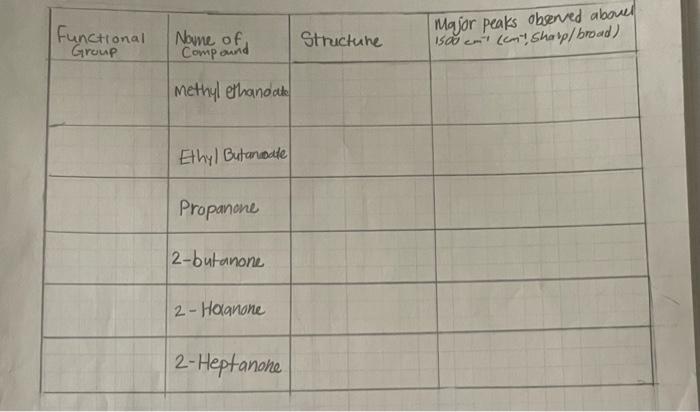 Functional
Group
Name of
Compound
Structure
Major peaks observed above
1500 cm⁻¹ (cm⁻¹, Sharp/broad)
Methyl ethanoate
Ethyl Butanoate
Propanone
2-butanone
2-Hexanone
2-Heptanone